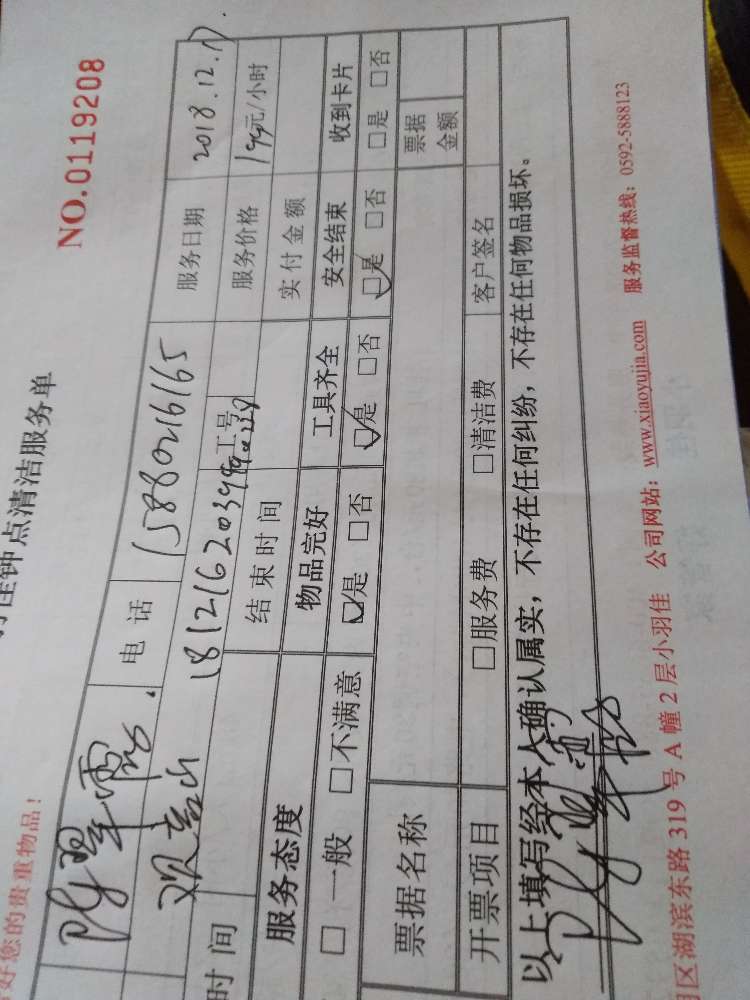 钟点清洁服务单
NO.0119208
好您的贵重物品！
电话 15880216165 服务日期 2018.12.17
观音山 服务价格 199元/小时
时间 结束时间 工号 实付金额
服务态度 物品完好 工具齐全 安全结束 收到卡片
□一般 □不满意 ☑是 □否 ☑是 □否 ☑是 □否 □是 □否
票据名称 票据金额
开票项目 □服务费 □清洁费 客户签名
以上填写经本人确认属实，不存在任何纠纷，不存在任何物品损坏。
区湖滨东路 319 号 A 幢 2 层小羽佳 公司网站：www.xiaoyujia.com 服务监督热线：0592-5888123